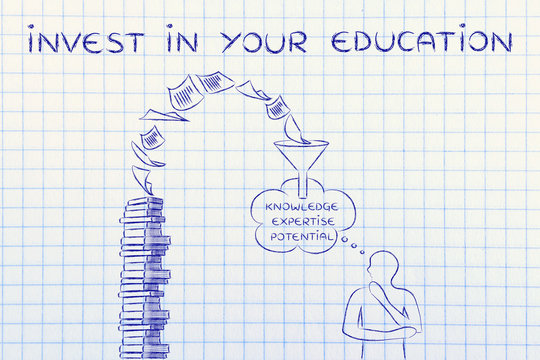 INVEST IN YOUR EDUCATION
KNOWLEDGE
EXPERTISE
POTENTIAL